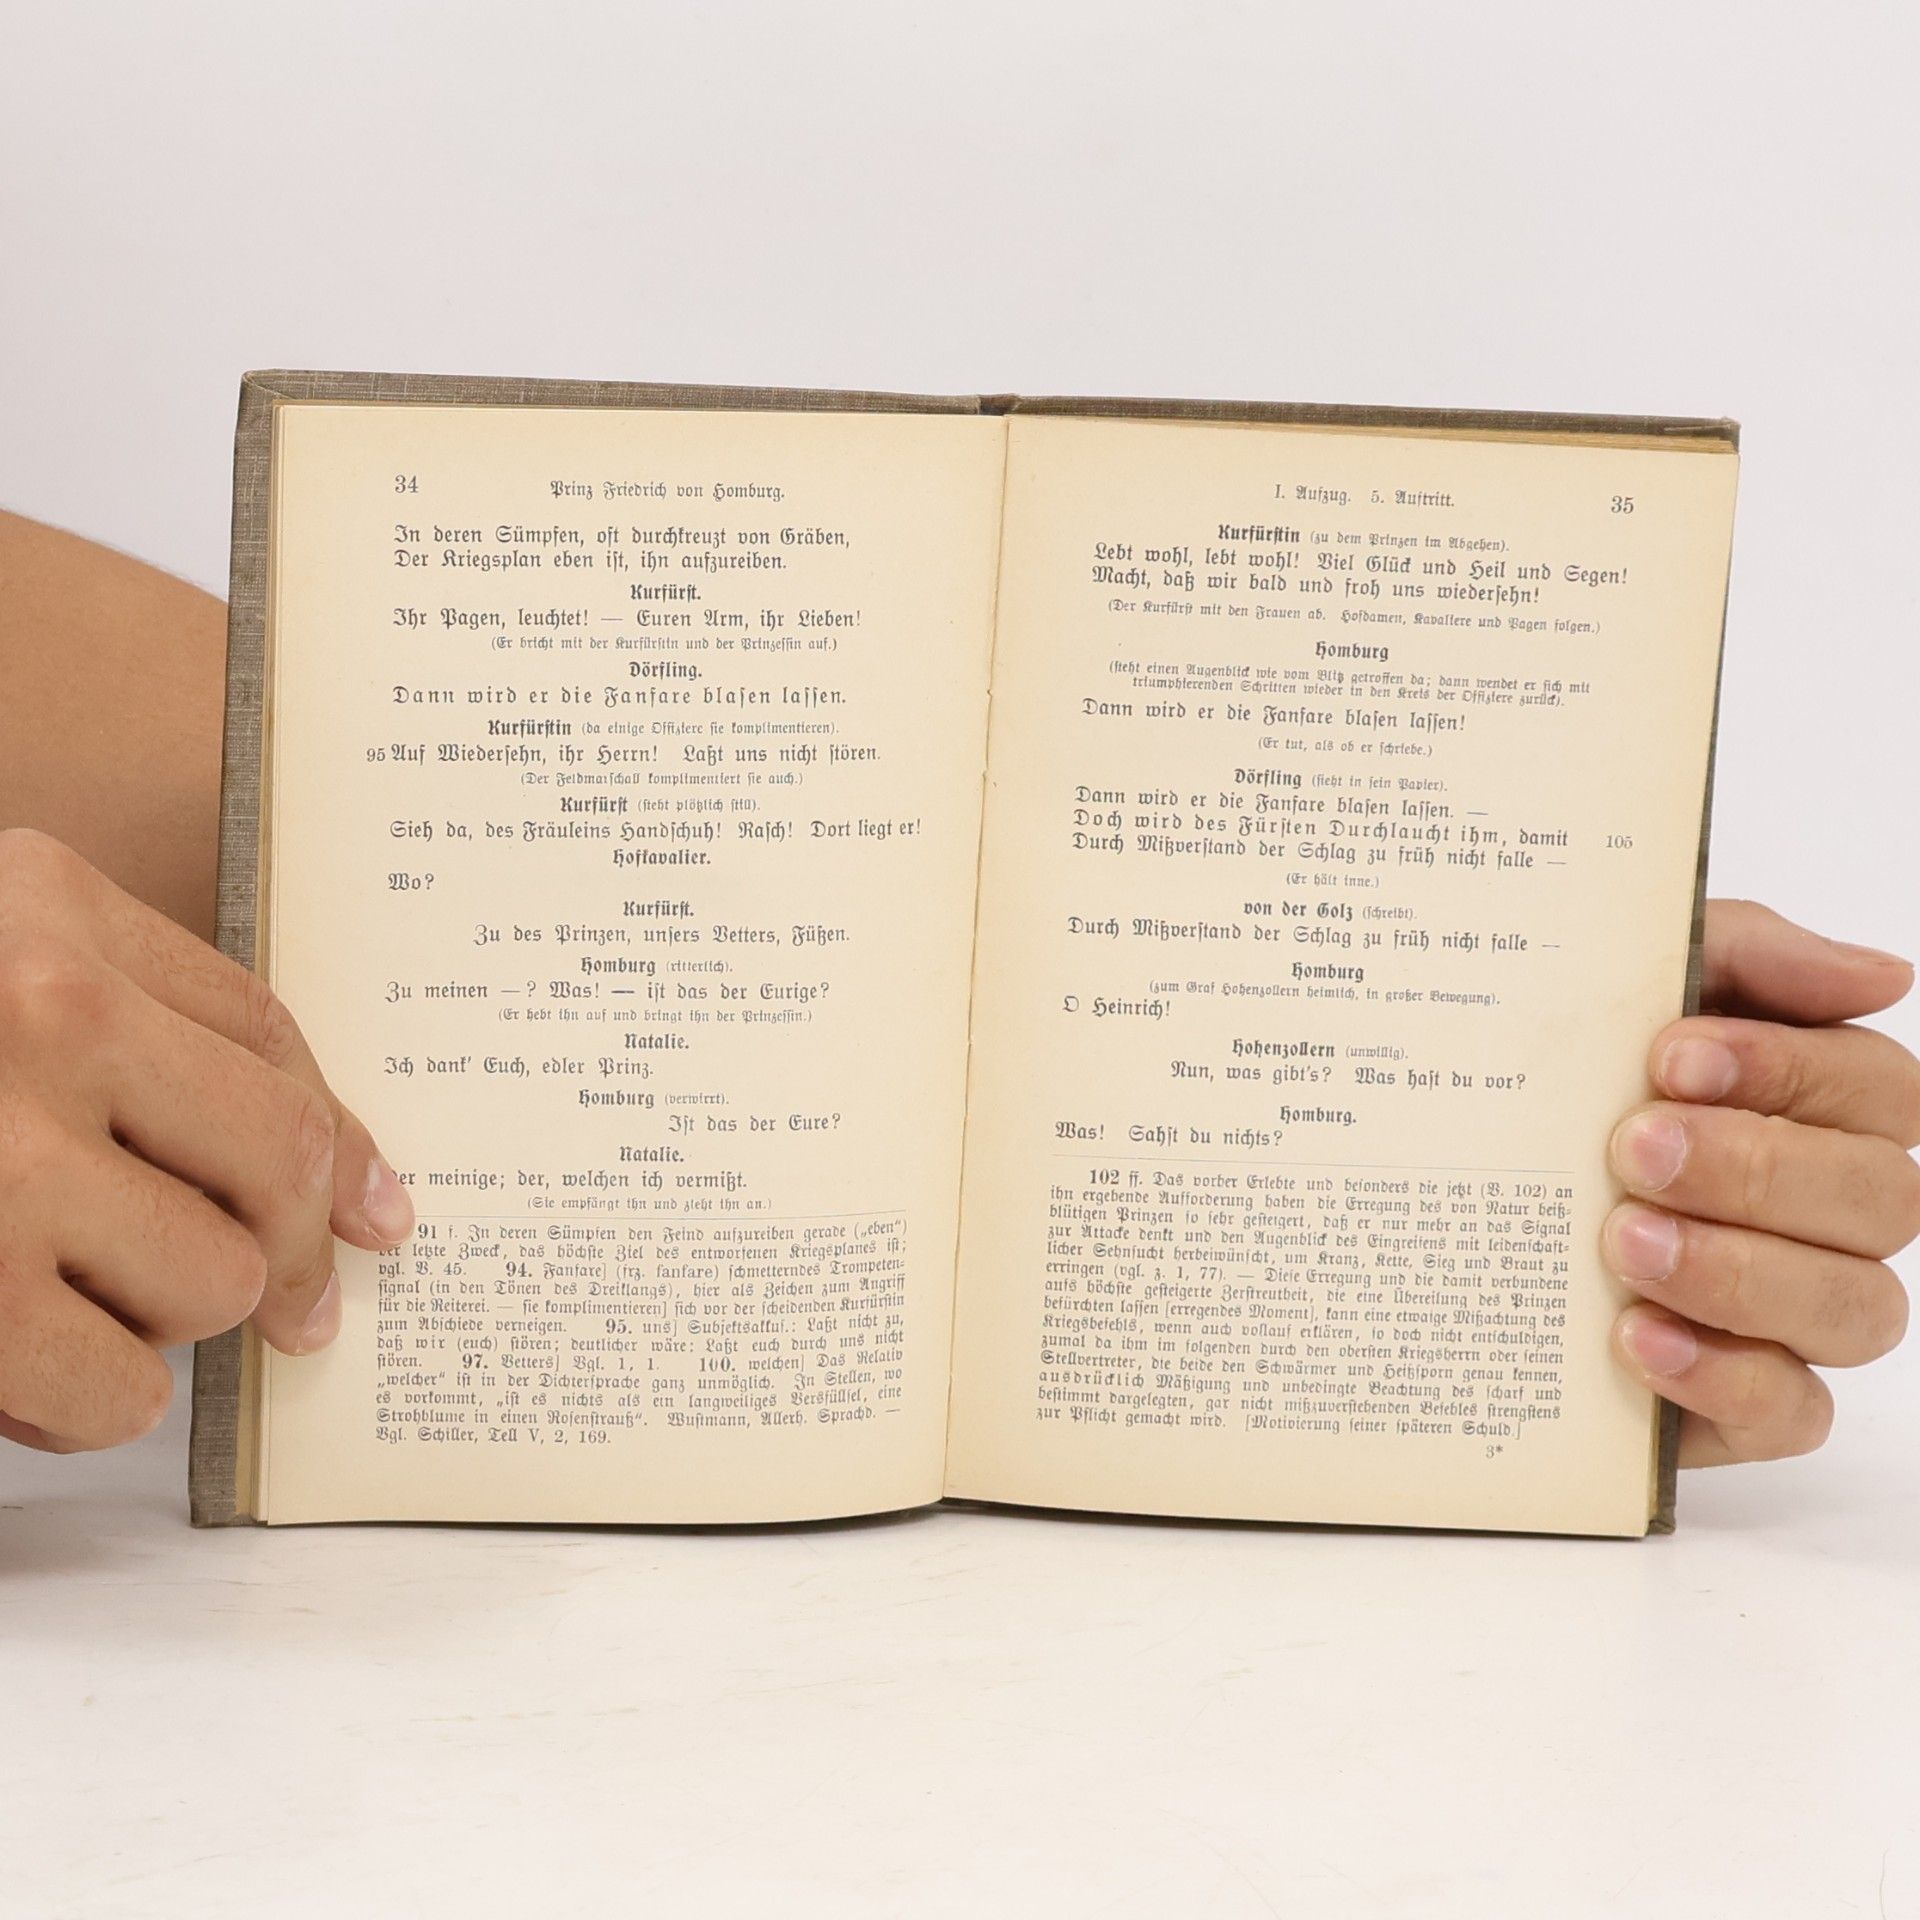 34 Prinz Friedrich von Homburg.
In deren Sümpfen, oft durchkreuzt von Gräben,
Der Kriegsplan eben ist, ihn aufzureiben.
Kurfürst.
Ihr Pagen, leuchtet! — Euren Arm, ihr Lieben!
(Er bricht mit der Kurfürstin und der Prinzessin auf.)
Dörfling.
Dann wird er die Fanfare blasen lassen.
Kurfürstin (da einige Offiziere sie komplimentieren).
95 Auf Wiedersehn, ihr Herrn! Laßt uns nicht stören.
(Der Feldmarschall komplimentiert sie auch.)
Kurfürst (steht plötzlich still).
Sieh da, des Fräuleins Handschuh! Rasch! Dort liegt er!
Hofkavalier.
Wo?
Kurfürst.
Zu des Prinzen, unsers Vetters, Füßen.
Homburg (ritterlich).
Zu meinen —? Was! — ist das der Eurige?
(Er hebt ihn auf und bringt ihn der Prinzessin.)
Natalie.
Ich dank' Euch, edler Prinz.
Homburg (verwirrt).
Ist das der Eure?
Natalie.
Der meinige; der, welchen ich vermißt.
(Sie empfängt ihn und zieht ihn an.)
91 f. In deren Sümpfen den Feind aufzureiben gerade („eben“)
der letzte Zweck, das höchste Ziel des entworfenen Kriegsplanes ist;
vgl. V. 45. 94. Fanfare] (frz. fanfare) schmetterndes Trompeten-
signal (in den Tönen des Dreiklangs), hier als Zeichen zum Angriff
für die Reiterei. — sie komplimentieren] sich vor der scheidenden Kurfürstin
zum Abschiede verneigen. 95. uns] Subjektsakkus.: Laßt nicht zu,
daß wir (euch) stören; deutlicher wäre: Laßt euch durch uns nicht
stören. 97. Vetters] Vgl. 1, 1. 100. welchen] Das Relativ
„welcher“ ist in der Dichtersprache ganz unmöglich. In Stellen, wo
es vorkommt, „ist es nichts als ein langweiliges Versfüllsel, eine
Strohblume in einen Rosenstrauß“. Wustmann, Allerh. Sprachd. —
Vgl. Schiller, Tell V, 2, 169.
I. Aufzug. 5. Auftritt. 35
Kurfürstin (zu dem Prinzen im Abgehen).
Lebt wohl, lebt wohl! Viel Glück und Heil und Segen!
Macht, daß wir bald und froh uns wiedersehn!
(Der Kurfürst mit den Frauen ab. Hofdamen, Kavaliere und Pagen folgen.)
Homburg
(steht einen Augenblick wie vom Blitz getroffen da; dann wendet er sich mit
triumphierenden Schritten wieder in den Kreis der Offiziere zurück).
Dann wird er die Fanfare blasen lassen!
(Er tut, als ob er schriebe.)
Dörfling (sieht in sein Papier).
Dann wird er die Fanfare blasen lassen. —
Doch wird des Fürsten Durchlaucht ihm, damit 105
Durch Mißverstand der Schlag zu früh nicht falle —
(Er hält inne.)
von der Golz (schreibt).
Durch Mißverstand der Schlag zu früh nicht falle —
Homburg
(zum Graf Hohenzollern heimlich, in großer Bewegung).
O Heinrich!
Hohenzollern (unwillig).
Nun, was gibt's? Was hast du vor?
Homburg.
Was! Sahst du nichts?
102 ff. Das vorher Erlebte und besonders die jetzt (V. 102) an
ihn ergehende Aufforderung haben die Erregung des von Natur heiß-
blütigen Prinzen so sehr gesteigert, daß er nur mehr an das Signal
zur Attacke denkt und den Augenblick des Eingreifens mit leidenschaft-
licher Sehnsucht herbeiwünscht, um Kranz, Kette, Sieg und Braut zu
erringen (vgl. z. 1, 77). — Diese Erregung und die damit verbundene
aufs höchste gesteigerte Zerstreutheit, die eine Übereilung des Prinzen
befürchten lassen [erregendes Moment], kann eine etwaige Mißachtung des
Kriegsbefehls, wenn auch vollauf erklären, so doch nicht entschuldigen,
zumal da ihm im folgenden durch den obersten Kriegsherrn oder seinen
Stellvertreter, die beide den Schwärmer und Heißsporn genau kennen,
ausdrücklich Mäßigung und unbedingte Beachtung des scharf und
bestimmt dargelegten, gar nicht mißzuverstehenden Befehles strengstens
zur Pflicht gemacht wird. [Motivierung seiner späteren Schuld.]
3*